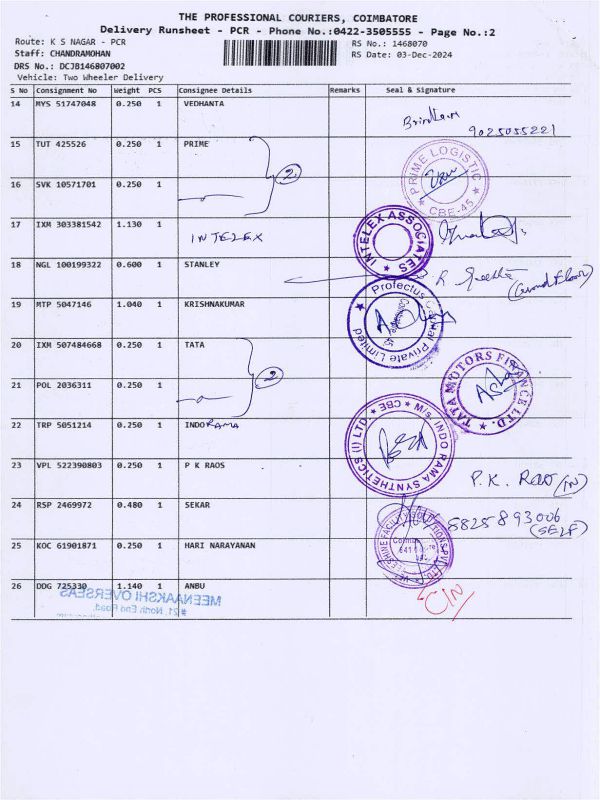 THE PROFESSIONAL COURIERS, COIMBATORE
Delivery Runsheet - PCR - Phone No.:0422-3505555 - Page No.:2
Route: K S NAGAR - PCR
RS No.: 1468070
Staff: CHANDRAMOHAN
RS Date: 03-Dec-2024
DRS No.: DCJB146807002
Vehicle: Two Wheeler Delivery
S No Consignment No Weight PCS Consignee Details Remarks Seal & Signature
14 MYS 51747048 0.250 1 VEDHANTA
9025055221
15 TUT 425526 0.250 1 PRIME
2
PRIME LOGISTIC
CBE-45
16 SVK 10571701 0.250 1
17 IXM 303381542 1.130 1 INTELEX
INTELEX ASSOCIATES
18 NGL 100199322 0.600 1 STANLEY
R (Ground Floor)
19 MTP 5047146 1.040 1 KRISHNAKUMAR
Profectus Capital Private Limited
20 IXM 507484668 0.250 1 TATA
2
TATA MOTORS FINANCE LTD.
21 POL 2036311 0.250 1
22 TRP 5051214 0.250 1 INDORAMA
M/s. INDO RAMA SYNTHETICS (I) LTD. CBE
23 VPL 522390803 0.250 1 P K RAOS
P.K. Rao (IN)
24 RSP 2469972 0.480 1 SEKAR
5825893006
(SELF)
25 KOC 61901871 0.250 1 HARI NARAYANAN
26 DDG 725330 1.140 1 ANBU
MEENAAKSHI OVERSEAS
# 21, North End Road,
C/N